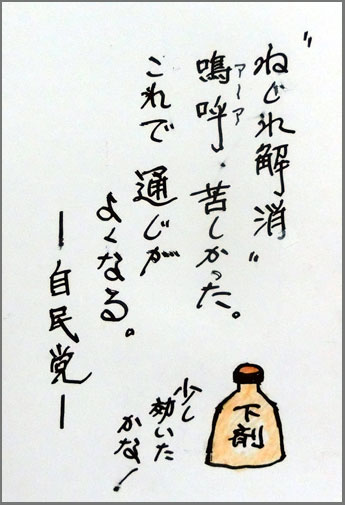 "ねじれ解消"
嗚呼・苦しかった。
アーア
これで通じが
よくなる。
―自民党―
少し
効いた
かな!
下剤